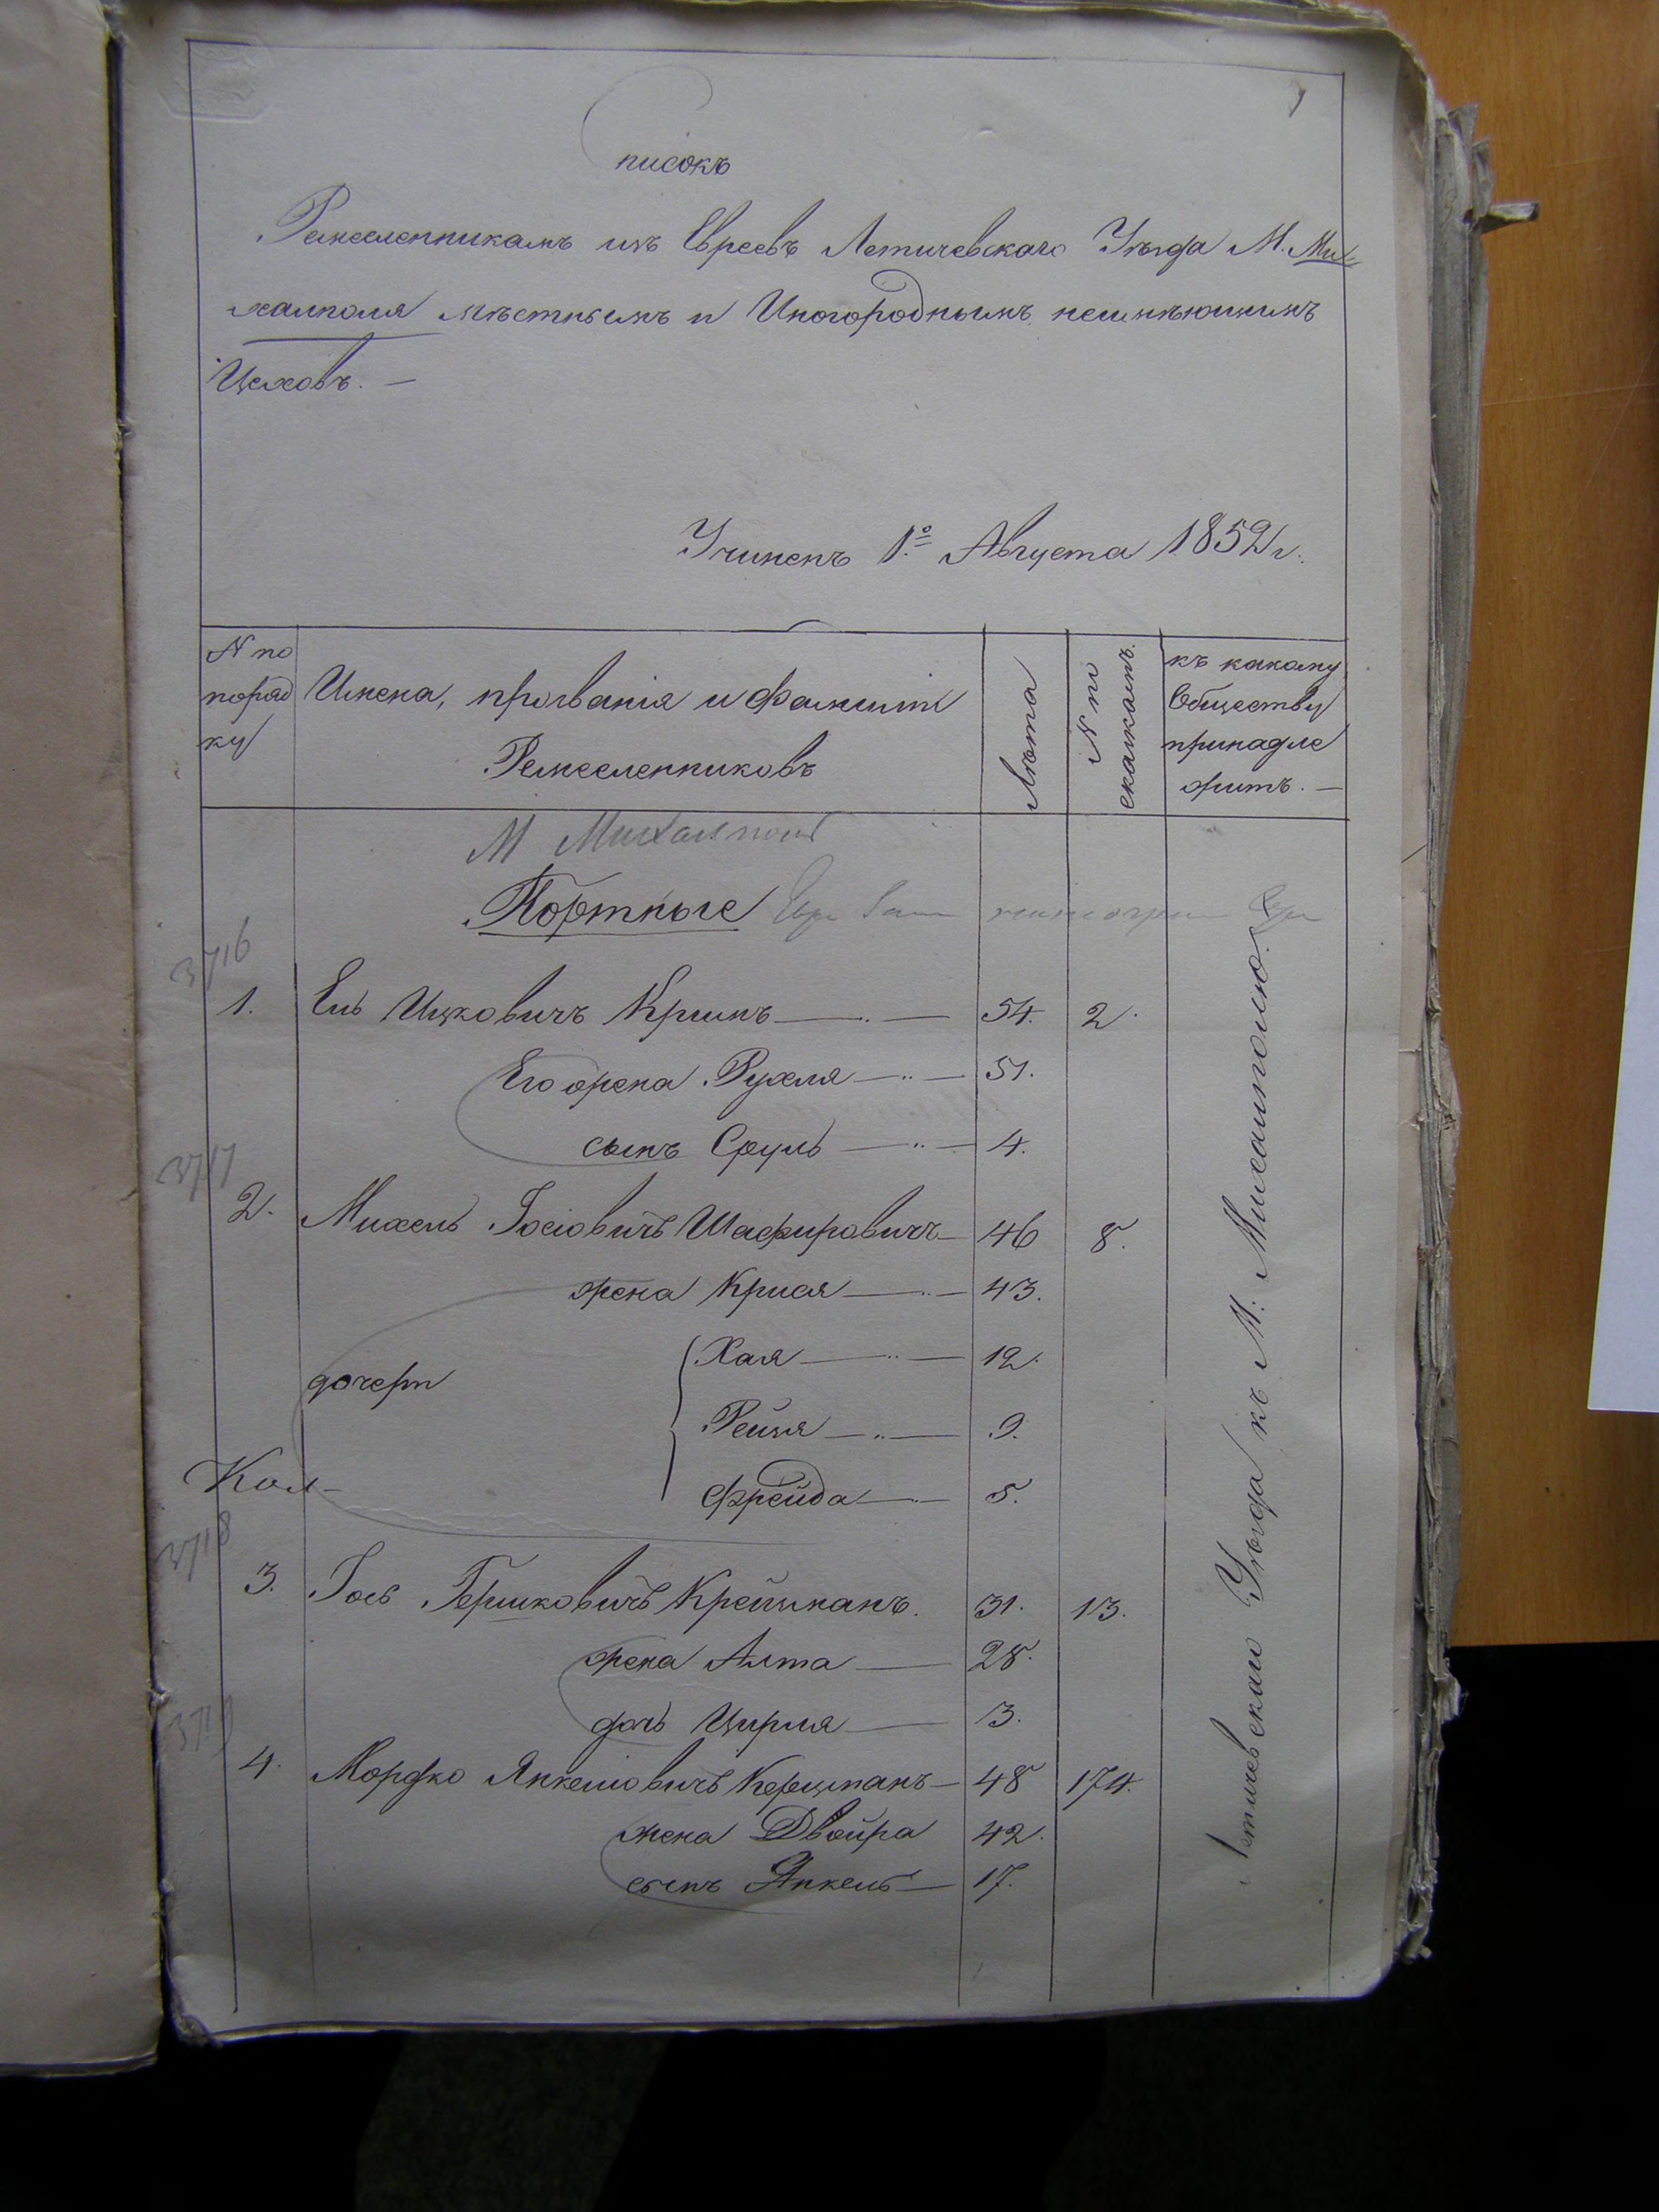 Списокъ
Ремесленникамъ изъ Евреевъ Летичевскаго Уѣзда М. Ми=
халполя мѣстнымъ и Иногороднымъ неимѣющимъ
Цеховъ. —
Учиненъ 1го Августа 1852 г.
N по
поряд
ку
Имена, прозванія и фамиліи
Ремесленниковъ
Лѣта
N по
сказкамъ.
къ какому
Обществу
принадле
житъ. —
М Михалполь
Портные
3716
1. Ель Ицковичъ Кримъ — 54. 2.
Его жена Рухля — 51.
сынъ Сруль — 4.
3717
2. Михель Іосіовичъ Шафировичъ — 46 8.
жена Крися — 43.
дочери
Хая — 12.
Рейзя — 9.
Фрейда — 5.
Кал-
3718
3. Іось Гершковичъ Крейцманъ. 31. 13.
жена Алта — 28.
дочь Цирля — 3.
3719
4. Мордко Янкеліовичъ Керцманъ — 48 174.
жена Двойра 42.
сынъ Янкель — 17.
Летичевскаго Уѣзда къ М: Михалполю.